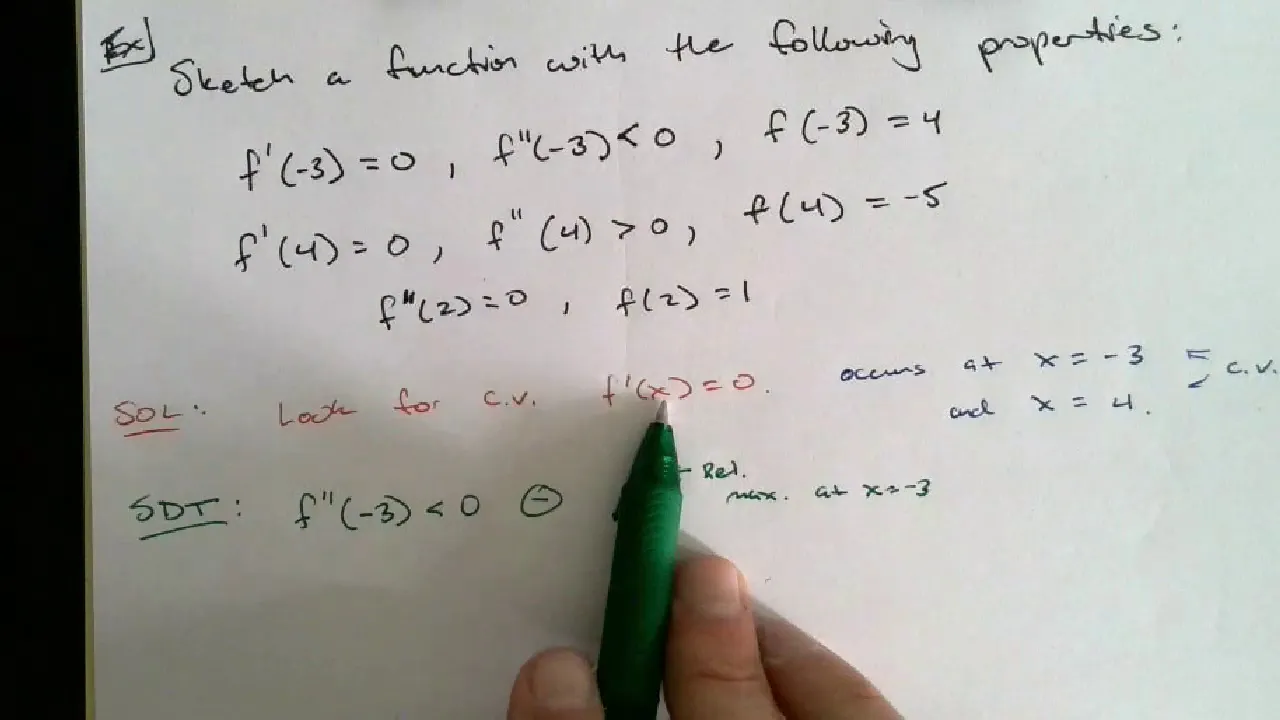 Ex] Sketch a function with the following properties:
f'(-3) = 0, f''(-3) < 0, f(-3) = 4
f'(4) = 0, f''(4) > 0, f(4) = -5
f''(2) = 0, f(2) = 1
SOL: Look for c.v. f'(x) = 0. occurs at x = -3 c.v.
and x = 4.
Rel.
SDT: f''(-3) < 0 ⊖ max. at x = -3